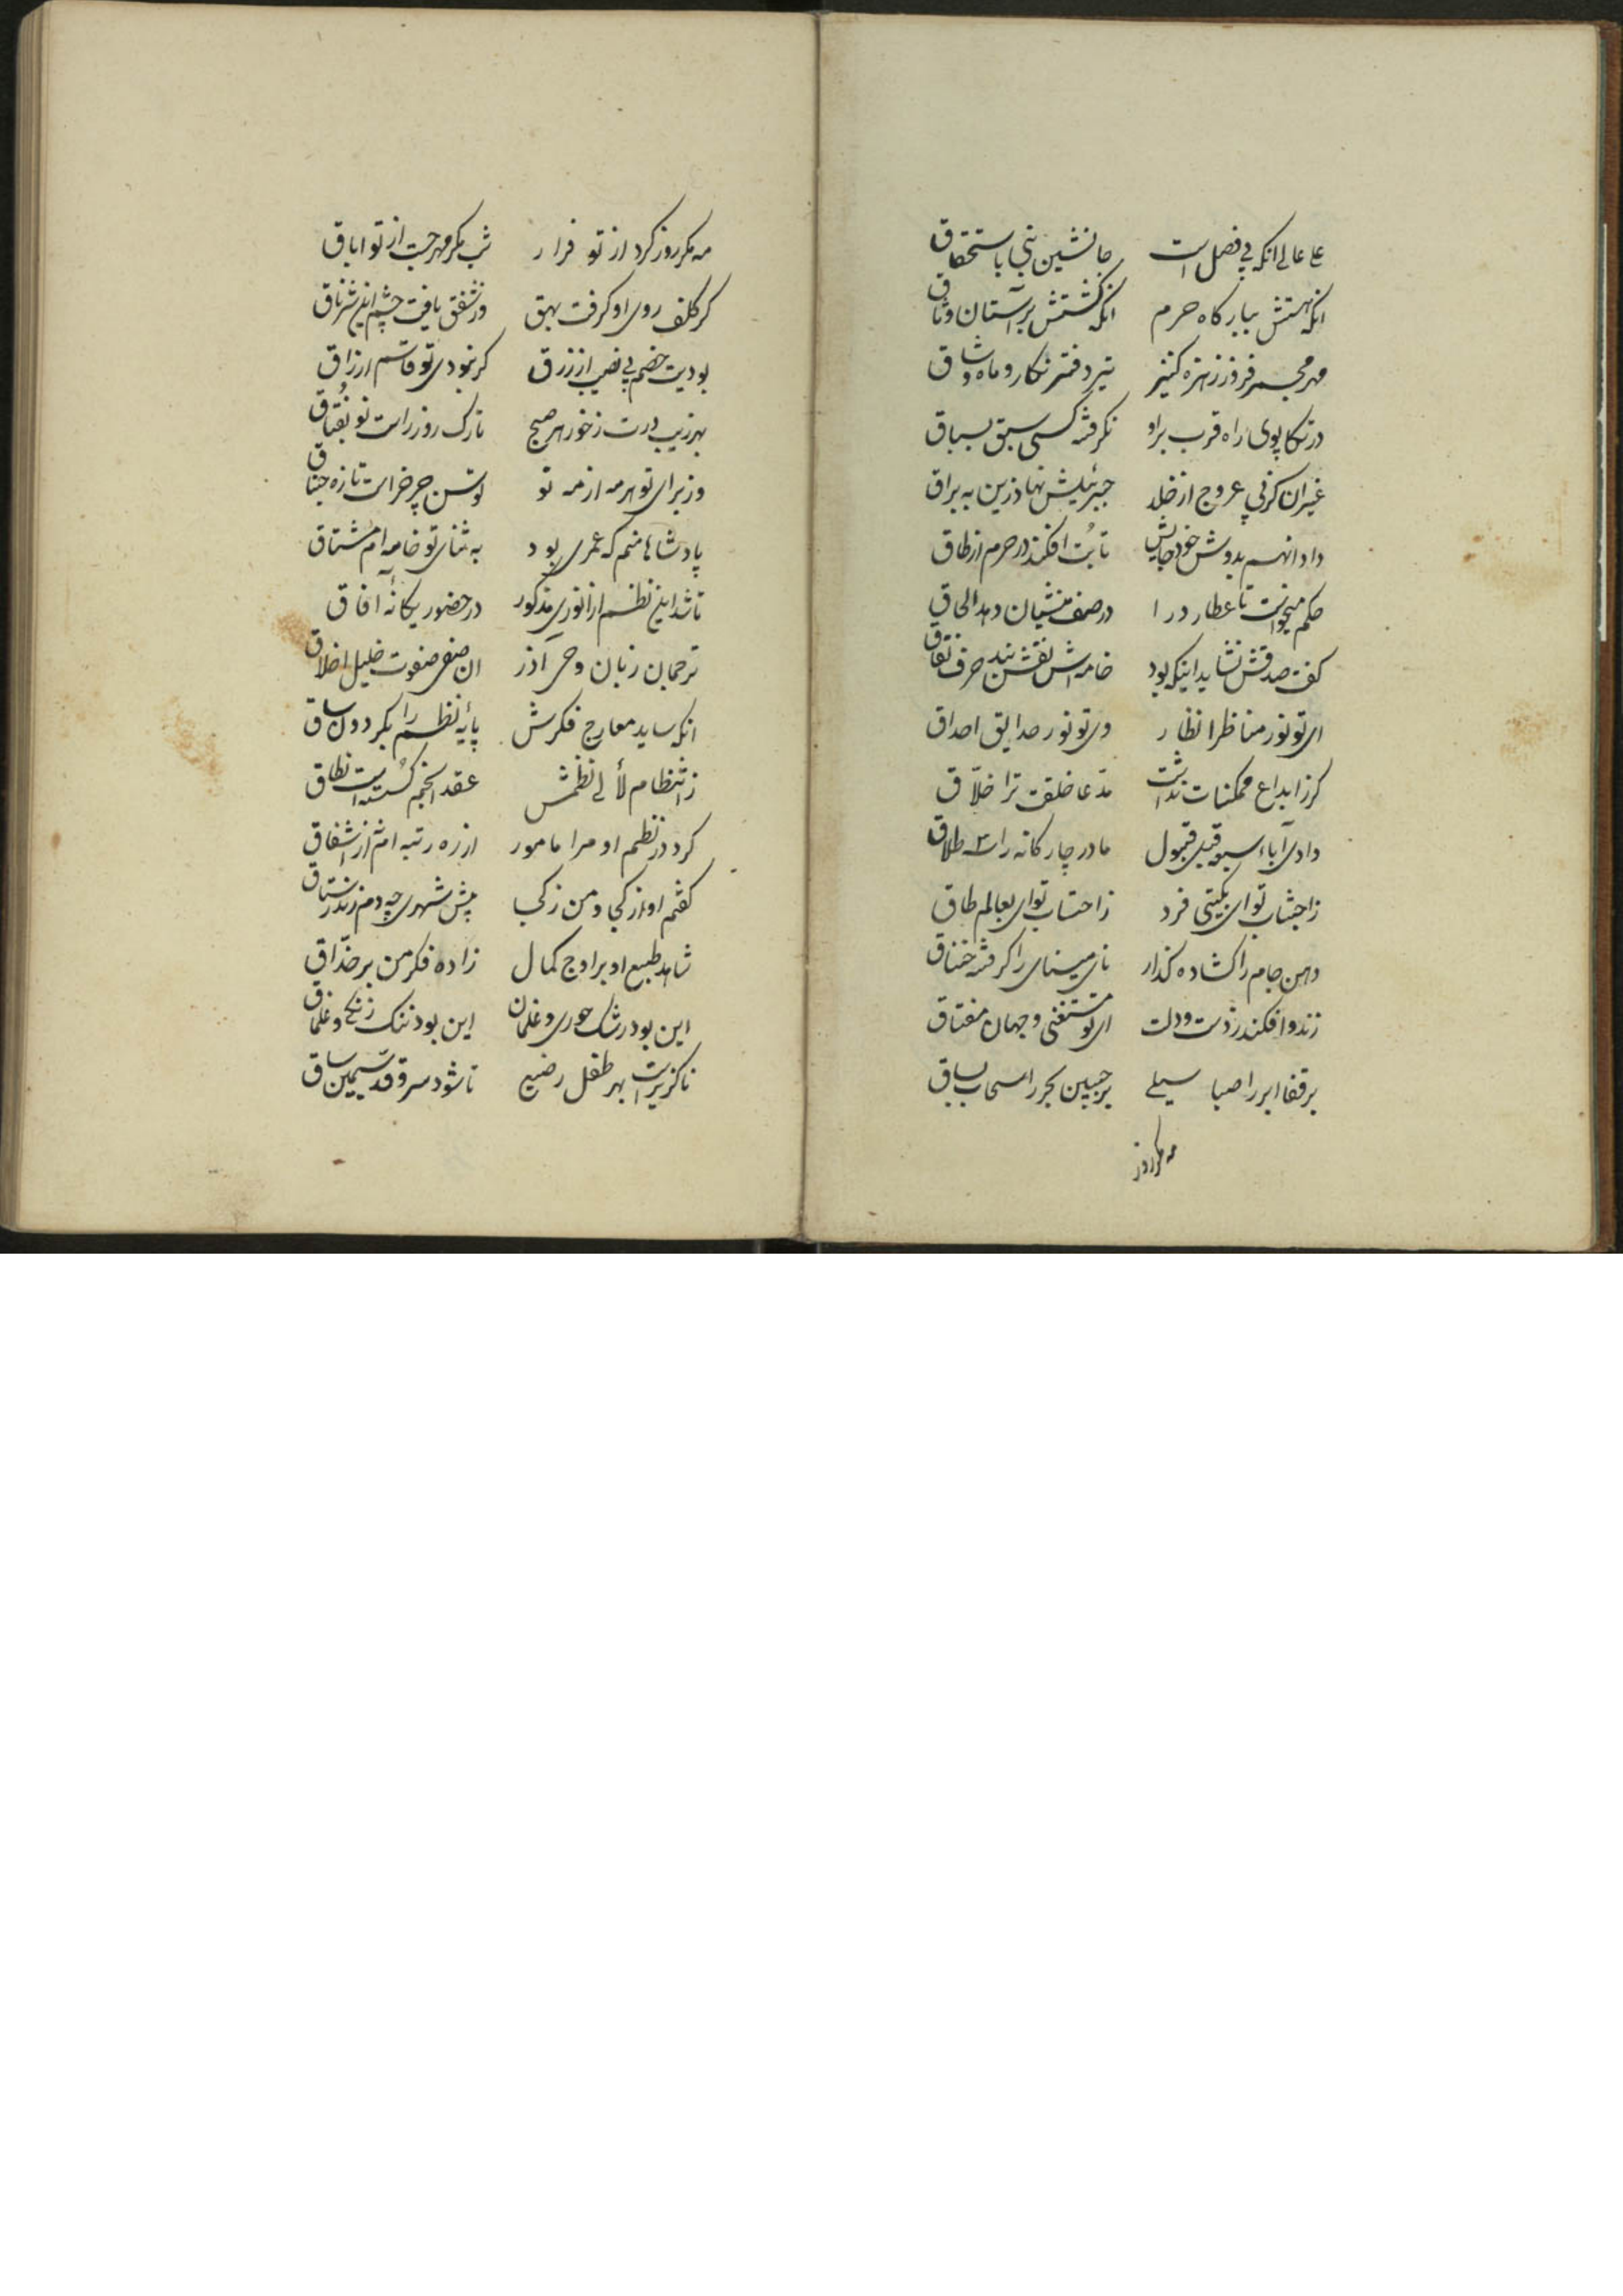 علی عالی انکه بی فصل است جانشین نبی باستحقاق
انکه بهشتش ببارکاه حرم انکه کشتش بر آستان وثاق
مهر مجمر فروز زهره کنیز تیر دفتر نکار و ماه وشاق
در تکاپوی راه قرب براو نکرفته کسی سبق بسباق
غیر ان کز پی عروج از خلد جبرئیلش نهاد زین به براق
داد انهم بدوش خود جایش تا بت افکند در حرم از طاق
حکم میخواست تا عطارد را در صف منشیان دهد الحاق
کفت صدقش نشاید اینکه بود خامه اش نقش بند حرف نفاق
ای تو نور مناظر انظار وی تو نور حدایق احداق
کر ز ابداع ممکنات نداشت مدعا خلقت ترا خلّاق
دادی آباء سبعه قبل قبول مادر چارکانه را سه طلاق
ز اجتناب تو ای بکیتی فرد ز احتساب تو ای بعالم طاق
دهن جام را کشاده کذار نای مینای را کرفته خناق
زند و افکند ز دست و دلت ای تو مستغنی و جهان مفتاق
بر قفا ابر را صبا سیلی بر جبین بحر را سحاب بساق
مه مکرروز
مه مکر روز کرد از تو فرار شب مکر مهر جست از تو اباق
کز کلف روی او کرفت بهق وز شفق یافت چشم این شرناق
بودیت خصم بی نصیب از رزق کر نبودی تو قاسم ارزاق
بهر زیب درت ز خور هر صبح تارک روز راست نو بُغتاق
وز برای تو هر مه از مه تو توسن چرخ راست تازه جناق
پادشاها منم که عمری بود به ثنای تو خامه ام مشتاق
تا شد این نظم از انوری مذکور در حضور یکانهٔ آفاق
ترجمان زبان وحی آذر ان صفی صفوت خلیل اخلاق
انکه ساید معارج فکرش پایهٔ نظم را بکردون ساق
ز انتظام لآلی نظمش عقد انجم کسسته است نطاق
کرد در نظم او مرا مامور از ره رتبه ام نه از اشفاق
کفتم او از کجا و من ز کجا پیش شهری چه دم زند رستاق
شاهد طبع او بر اوج کمال زاده فکر من بر حذّاق
این بود رشک حوری و غلمان این بود ننک زنکی و غلماق
ناکزیر است بهر طفل رضیع تا شود سرو قد سیمین ساق